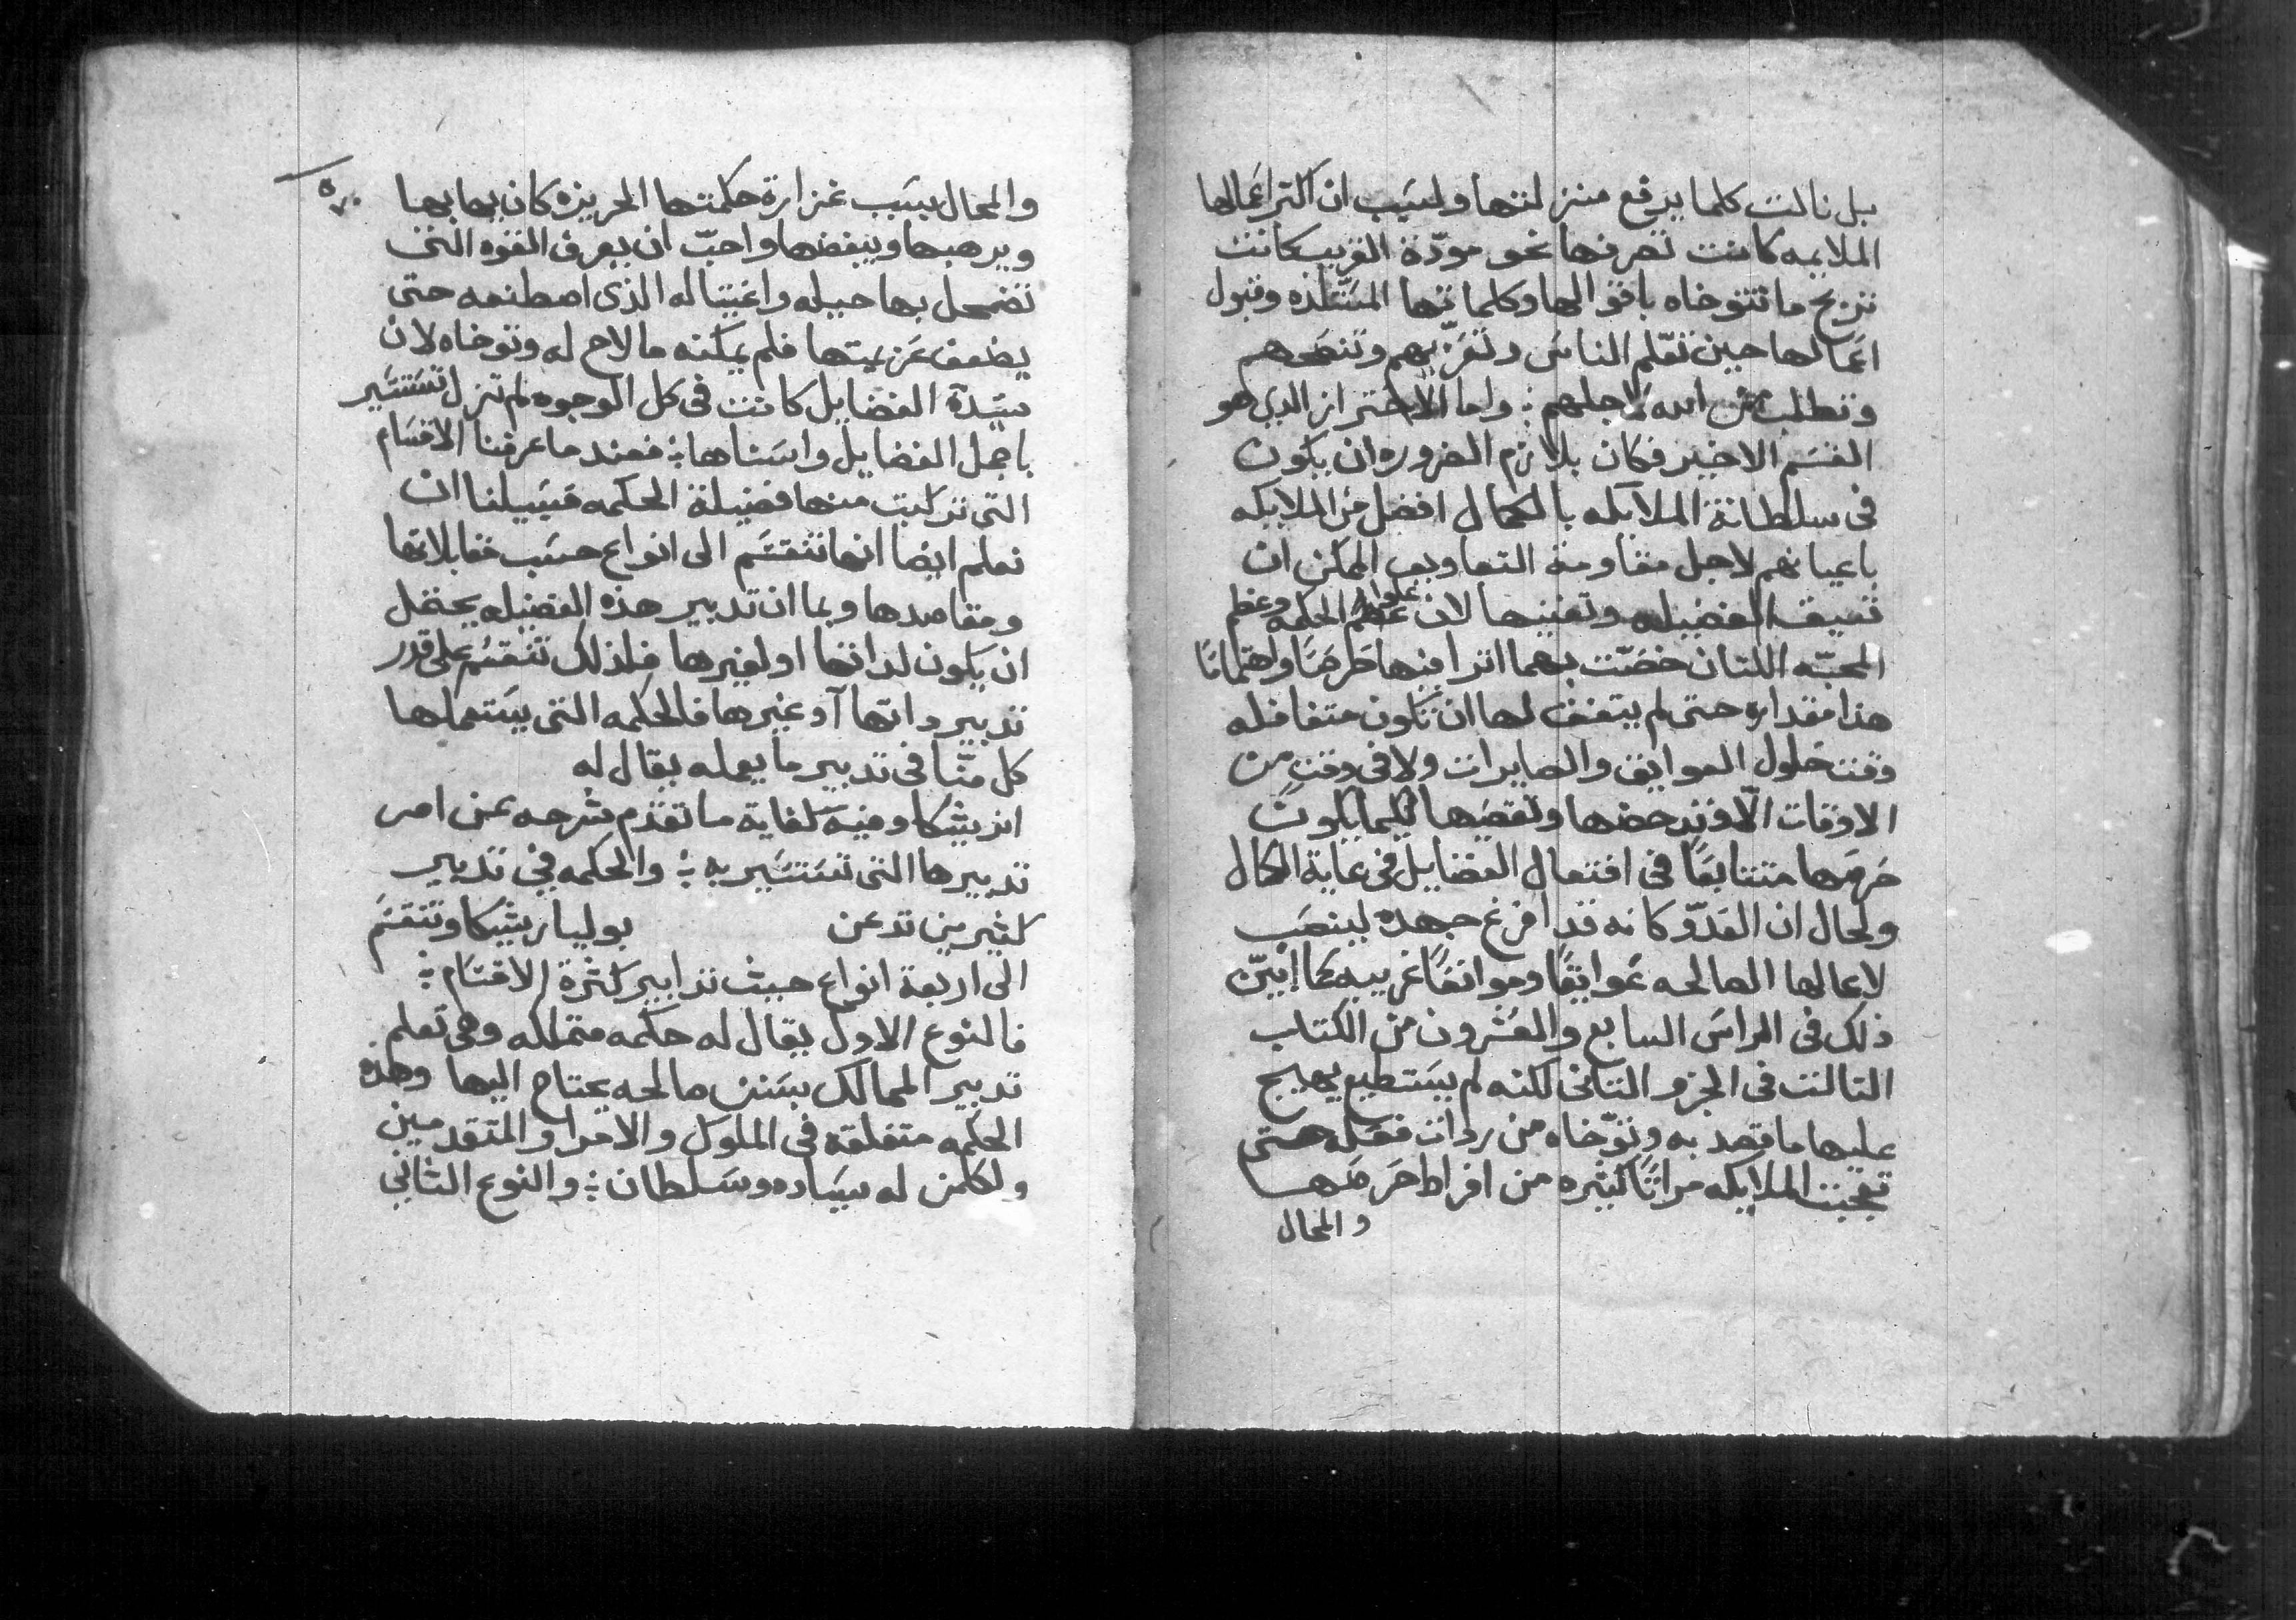 بل نالت كلما يرفع منزلتها ولسبب ان اكثر اعمالها
الملايمه كانت تصرفها نحو مودّة القريب كانت
تربح ما تتوخاه باقوالها وكلماتها المستلذه وقبول
اعمالها حين تعلّم الناس وتعزّيهم وتنصحهم
وتطلب من الله لاجلهم ؛ واما الاحتراز الدي هو
القسم الاخير فكان بلازم الضروره ان يكون
فى سلطانة الملايكه بالكمال افضل من الملايكه
باعيانهم لاجل مقاومة التعاويق الممكن ان
تعيق الفضيله وتفنيها لان علو الحكمه وعظم
المحبّه اللتان خصّت بهما اثرا فيها حرصًا واهتمامًا
هذا مقداره حتى لم يتفق لها ان تكون متغافله
وقت حلول العوايق والصايرات ولا فى وقتٍ من
الاوقات الّا وتدحضها وتقصيها لكيما يكون
حرصها متتابعًا فى افتعال الفضايل فى غاية الكمال
ولحال ان العدّو كانه قد افرغ جهده لينصب
لاعمالها الصالحه عوايقًا وموانعًا غريبه كما ابيّن
ذلك فى الراس السابع والعشرون من الكتاب
التالت فى الجزو التانى لكنه لم يستطيع يهيج
عليها ما قصد به وتوّخاه من ردات فعله حتى
تعجبت الملايكه مراتًا كثيره من افراط حرصها
والمحال
والمحال بسبب غزارة حكمتها الحريزه كان يهابها
ويرهبها ويبغضها واحبّ ان يعرف القوه التى
تضمحل بها حيله واغتياله الذى اصطنعه حتى
يضعف عزيمتها فلم يمكنه ما لاح له وتوخاه لان
سيّدة الفضايل كانت فى كل الوجوه لم تزل تستسير
باجمل الفضايل واسناها ؛ فعند ما عرفنا الاقسام
التى تركبت منها فضيلة الحكمه فسبيلنا ان
نعلم ايضا انها تنقسم الى انواع حسب مقابلاتها
ومقاصدها وبما ان تدبير هذه الفضيله يحتمل
ان يكون لداتها او لغيرها فلذلك تنقسم على قدر
تدبير داتها او غيرها فالحكمه التى يستعملها
كل منّا فى تدبير ما يعمله يقال له
اثريشكا وفيه كفاية ما تقدّم شرحه عن امر
تدبيرها التى تستسير به ؛ والحكمه فى تدبير
كثيرين تدعى بوليباريشكا وتنقسم
الى اربعة انواع حيث تدابير كثرة الاقسام ؛
فالنوع الاول يقال له حكمه متملكه وهى تعلم
تدبير الممالك بسنن صالحه يحتاج اليها وهذه
الحكمه متعلقه فى الملوك والامرا والمتقدمين
ولكلمن له سياده وسلطان ؛ والنوع الثانى